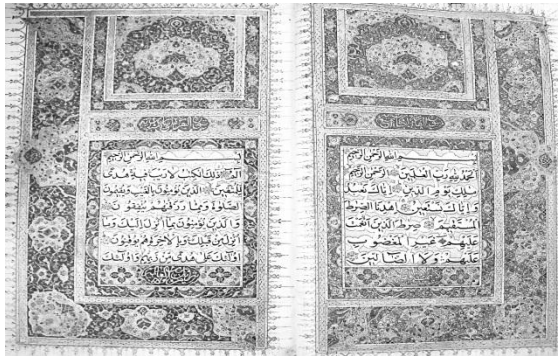 بسم الله الرحمن الرحيم
الحمد لله رب العلمين
ملك يوم الدين اياك نعبد
واياك نستعين اهدنا الصرط
المستقيم صرط الذين انعمت
عليهم غير المغضوب
عليهم ولا الضالين
بسم الله الرحمن الرحيم
الم ذلك الكتب لا ريب فيه هدى
للمتقين الذين يؤمنون بالغيب ويقيمون
الصلوة ومما رزقنهم ينفقون
والذين يؤمنون بما انزل اليك وما
انزل من قبلك وبالاخرة هم يوقنون
اولئك على هدى من ربهم واولئك